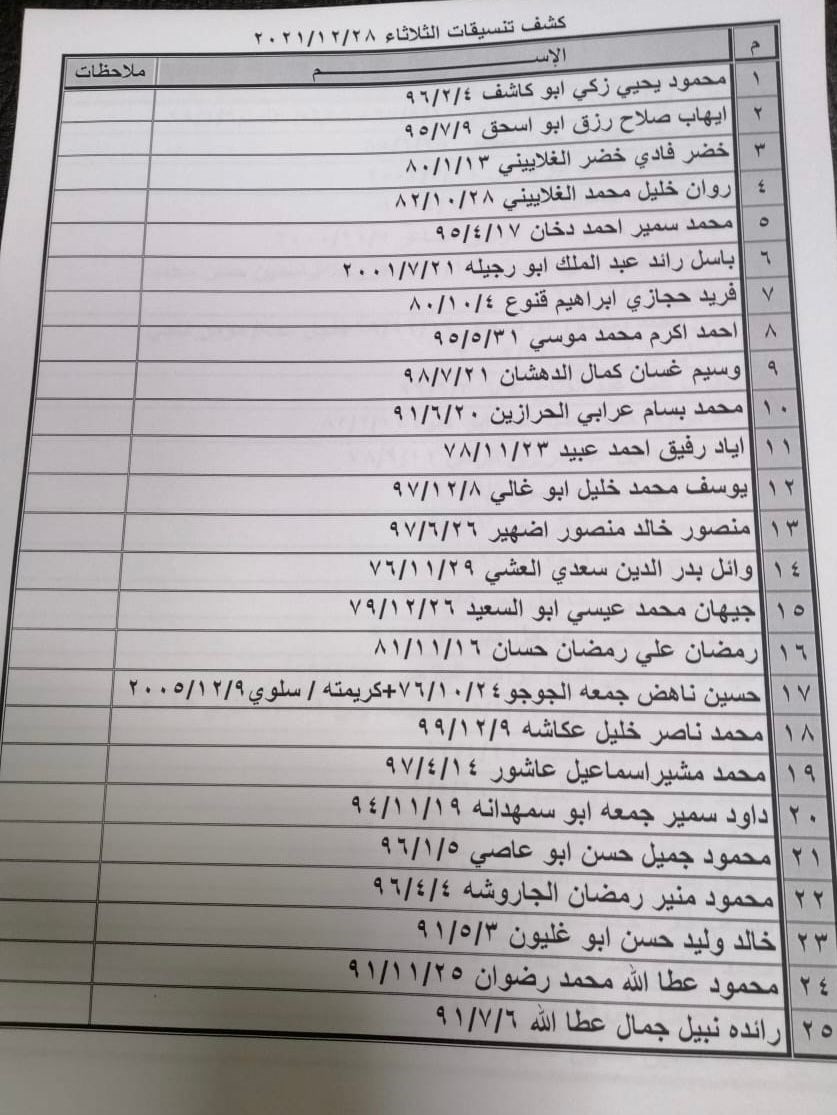 كشف تنسيقات الثلاثاء ٢٠٢١/١٢/٢٨
م الإســـــــــــــــم ملاحظات
١ محمود يحيي زكي ابو كاشف ٩٦/٢/٤
٢ ايهاب صلاح رزق ابو اسحق ٩٥/٧/٩
٣ خضر فادي خضر الغلاييني ٨٠/١/١٣
٤ روان خليل محمد الغلاييني ٨٢/١٠/٢٨
٥ محمد سمير احمد دخان ٩٥/٤/١٧
٦ باسل رائد عبد الملك ابو رجيله ٢٠٠١/٧/٢١
٧ فريد حجازي ابراهيم قنوع ٨٠/١٠/٤
٨ احمد اكرم محمد موسي ٩٥/٥/٣١
٩ وسيم غسان كمال الدهشان ٩٨/٧/٢١
١٠ محمد بسام عرابي الحرازين ٩١/٦/٢٠
١١ اياد رفيق احمد عبيد ٧٨/١١/٢٣
١٢ يوسف محمد خليل ابو غالي ٩٧/١٢/٨
١٣ منصور خالد منصور اضهير ٩٧/٦/٢٦
١٤ وائل بدر الدين سعدي العشي ٧٦/١١/٢٩
١٥ جيهان محمد عيسي ابو السعيد ٧٩/١٢/٢٦
١٦ رمضان علي رمضان حسان ٨١/١١/١٦
١٧ حسين ناهض جمعه الجوجو ٧٦/١٠/٢٤+كريمته / سلوي ٢٠٠٥/١٢/٩
١٨ محمد ناصر خليل عكاشه ٩٩/١٢/٩
١٩ محمد مشير اسماعيل عاشور ٩٧/٤/١٤
٢٠ داود سمير جمعه ابو سمهدانه ٩٤/١١/١٩
٢١ محمود جميل حسن ابو عاصي ٩٦/١/٥
٢٢ محمود منير رمضان الجاروشه ٩٦/٤/٤
٢٣ خالد وليد حسن ابو غليون ٩١/٥/٣
٢٤ محمود عطا الله محمد رضوان ٩١/١١/٢٥
٢٥ رائده نبيل جمال عطا الله ٩١/٧/٦